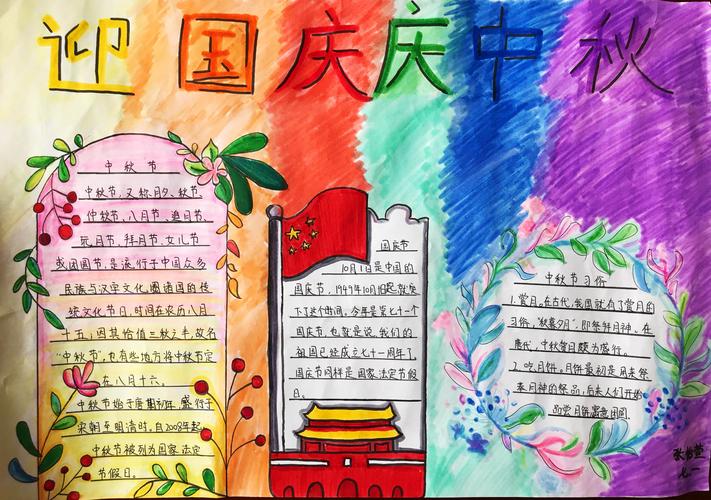 迎国庆庆中秋
中秋节
中秋节,又称月夕、秋节、
仲秋节、八月节、追月节、
玩月节、拜月节、女儿节
或团圆节,是流行于中国众多
民族与汉字文化圈诸国的传
统文化节日,时间在农历八月
十五;因其恰值三秋之半,故名
“中秋节”,也有些地方将中秋节定
在八月十六。
中秋节始于唐朝初年,盛行于
宋朝至明清时,自2008年起
中秋节被列为国家法定
节假日。
国庆节
10月1日是中国的
国庆节,1949年10月1日起就定
下了这个时间,今年是第七十一个
国庆节,也就是说,我们的
祖国已经成立七十一周年了。
国庆节同样是国家法定节假
日。
中秋节习俗
1.赏月。在古代,我国就有了赏月的
习俗,“秋暮夕月”,即祭拜月神、在
唐代,中秋赏月颇为盛行。
2.吃月饼。月饼最初是用来祭
奉月神的祭品,后来人们开始
品尝月饼寓意团圆
七一